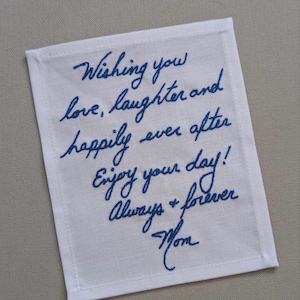 Wishing you
love, laughter and
happily ever after
Enjoy your day!
Always + forever
Mom